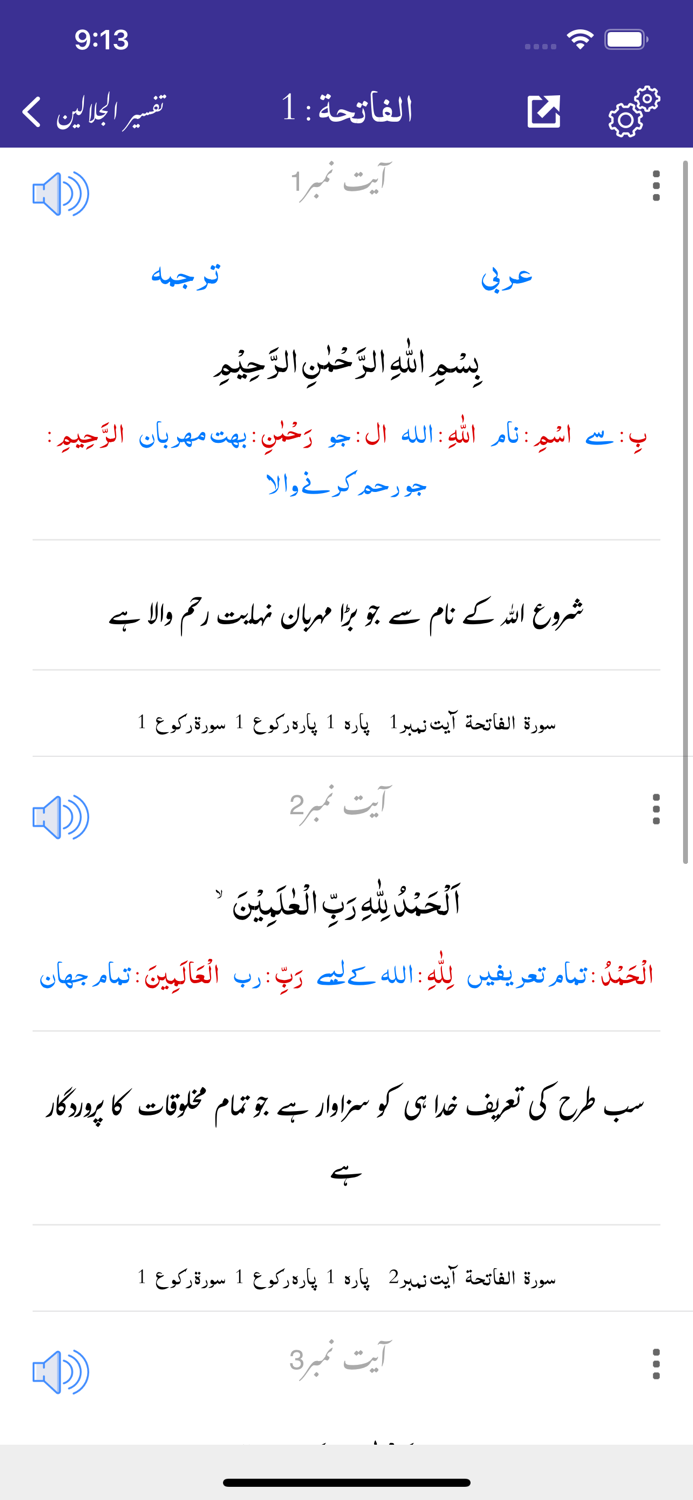 9:13
تفسیر الجلالین
الفاتحة : 1
آیت نمبر1
عربی ترجمه
بِسْمِ اللّٰهِ الرَّحْمٰنِ الرَّحِيْمِ
بِ: سے اسْمِ: نام اللّٰهِ: الله ال: جو رَحْمٰنِ: بهت مهربان الرَّحِيمِ:
جو رحم کرنے والا
شروع الله کے نام سے جو بڑا مہربان نہایت رحم والا ہے
سورة الفاتحة آیت نمبر1 پاره 1 پاره رکوع 1 سورة رکوع 1
آیت نمبر2
اَلْحَمْدُ لِلّٰهِ رَبِّ الْعٰلَمِيْنَ ۙ
الْحَمْدُ: تمام تعریفیں لِلّٰهِ: الله کے لیے رَبِّ: رب الْعَالَمِينَ: تمام جهان
سب طرح کی تعریف خدا ہی کو سزاوار ہے جو تمام مخلوقات کا پروردگار
ہے
سورة الفاتحة آیت نمبر2 پاره 1 پاره رکوع 1 سورة رکوع 1
آیت نمبر3